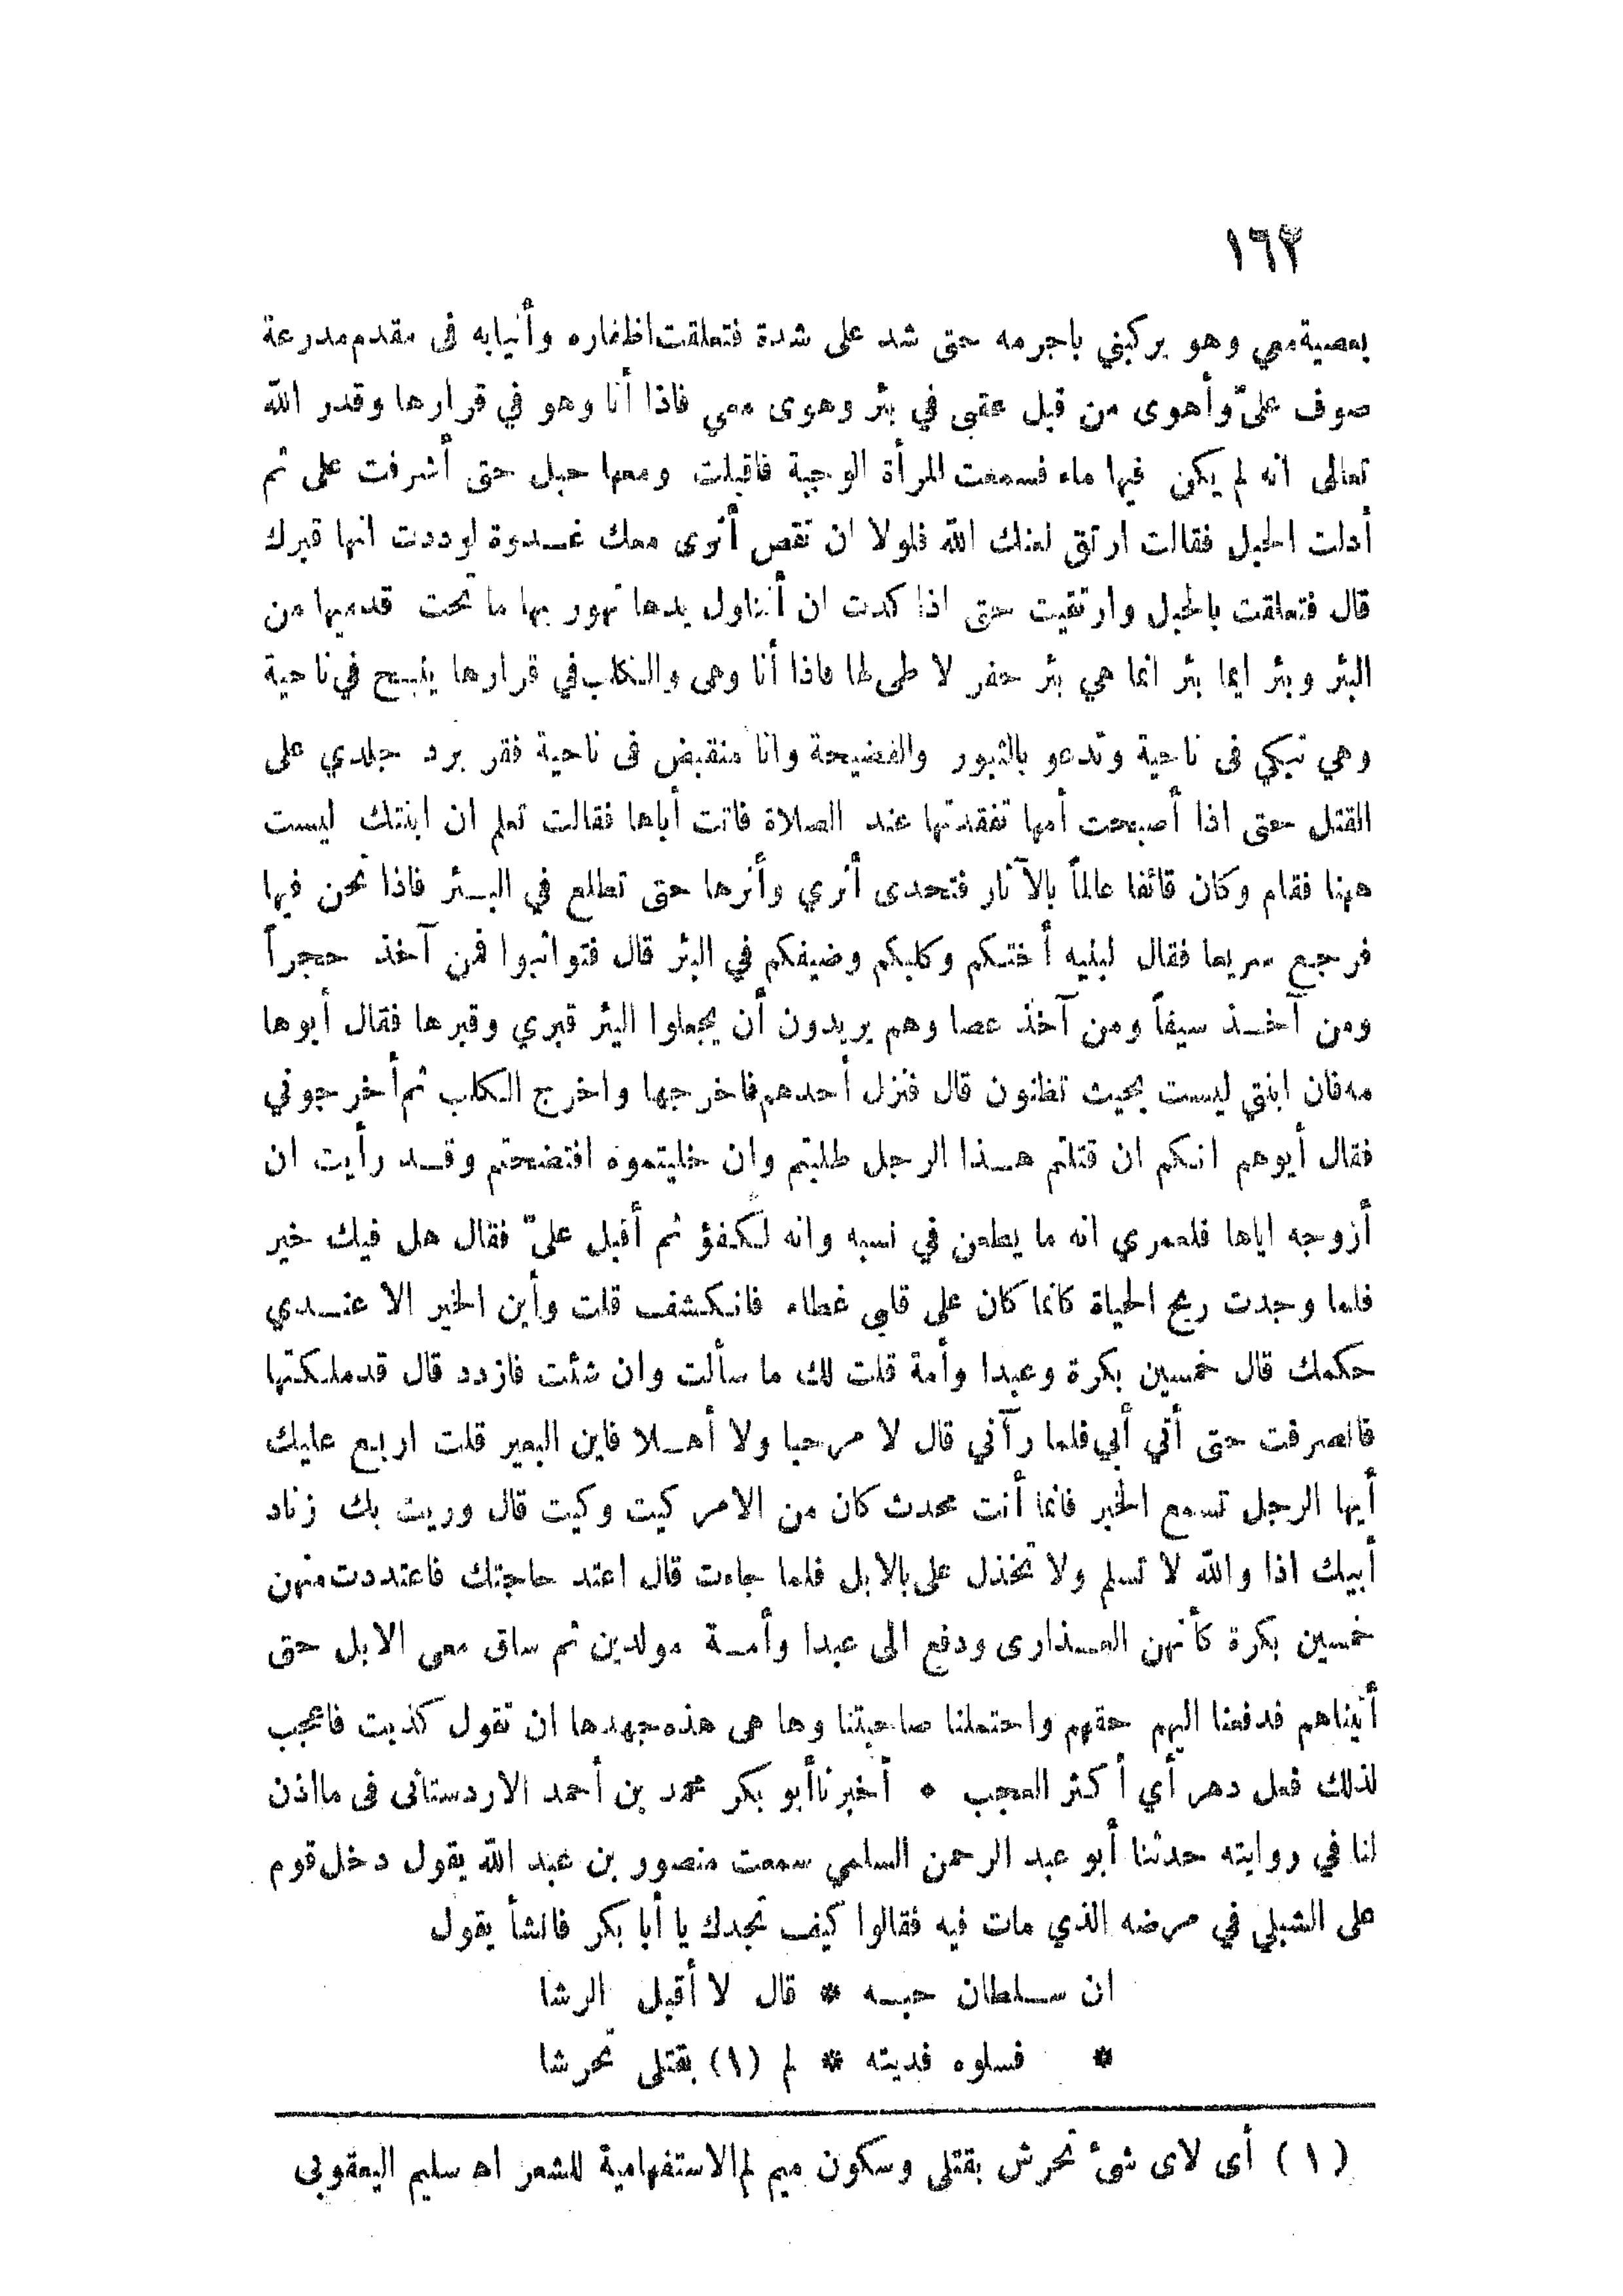 ١٦٢
بعصية معي وهو يركبني باجرمه حتى شد على شدة فتعلقت اظفاره وأنيابه فى مقدم مدرعة
صوف عليّ وأهوى من قبل عقبى في بئر وهوى معي فاذا أنا وهو في قرارها وقدر الله
تعالى انه لم يكن فيها ماء فسمعت المرأة الوجبة فاقبلت ومعها حبل حتى أشرفت على ثم
أدلت الحبل فقالت ارتق لعنك الله فلولا ان تقص أثرى معك غـدوة لوددت انها قبرك
قال فتعلقت بالحبل وارتقيت حتى اذا كدت ان أتناول يدها تهور بها ما تحت قدميها من
البئر وبئر ايما بئر انما هي بئر حفر لا طى لها فاذا أنا وهى والكلب في قرارها ينبـح في ناحية
وهي تبكي فى ناحية وتدعو بالثبور والفضيحة وانا منقبض فى ناحية فقر برد جلدي على
القتل حتى اذا أصبحت أمها تفقدتها عند الصلاة فاتت أباها فقالت تعلم ان ابنتك ليست
ههنا فقام وكان قائفا عالماً بالآثار فتحدى أثري وأثرها حتى تطلع في البـئر فاذا نحن فيها
فرجع سريعا فقال لبنيه أختكم وكلبكم وضيفكم في البئر قال فتواثبوا فمن آخذ حجراً
ومن آخـذ سيفاً ومن آخذ عصا وهم يريدون أن يجعلوا البئر قبري وقبرها فقال أبوها
مه فان ابنتي ليست بحيث تظنون قال فنزل أحدهم فاخرجها واخرج الكلب ثم أخرجوني
فقال أبوهم انكم ان قتلتم هـذا الرجل طلبتم وان خليتموه افتضحتم وقـد رأيت ان
أزوجه اياها فلعمري انه ما يطعن في نسبه وانه لكفؤ ثم أقبل عليّ فقال هل فيك خير
فلما وجدت ريح الحياة كانما كان على قلبي غطاء فانكشف قلت وأين الخير الا عنـدي
حكمك قال خمسين بكرة وعبدا وأمة قلت لك ما سألت وان شئت فازدد قال قد ملكتها
فانصرفت حتى أتي أبي فلما رآني قال لا مرحبا ولا أهـلا فاين البعير قلت اربع عليك
أيها الرجل تسمع الخبر فانما أنت محدث كان من الامر كيت وكيت قال وريت بك زناد
أبيك اذا والله لا تسلم ولا تخذل على بالابل فلما جاءت قال اعتد حاجتك فاعتددت منهن
خمسين بكرة كأنهن العـذارى ودفع الى عبدا وأمـة مولدين ثم ساق معى الابل حتى
أتيناهم فدفعنا اليهم حقهم واحتملنا صاحبتنا وها هى هذه جهدها ان تقول كذبت فاعجب
لذلك فعل دهر أي أكثر العجب * أخبرنا أبو بكر محمد بن أحمد الاردستانى فى ما اذن
لنا في روايته حدثنا أبو عبد الرحمن السلمي سمعت منصور بن عبد الله يقول دخل قوم
على الشبلي في مرضه الذي مات فيه فقالوا كيف تجدك يا أبا بكر فانشأ يقول
ان سـلطان حبـه * قال لا أقبل الرشا
* فسلوه فديته * لم (١) بقتلى تحرشا
(١) أى لاى شئ تحرش بقتلى وسكون ميم لم الاستفهامية للشعر اه سليم اليعقوبى